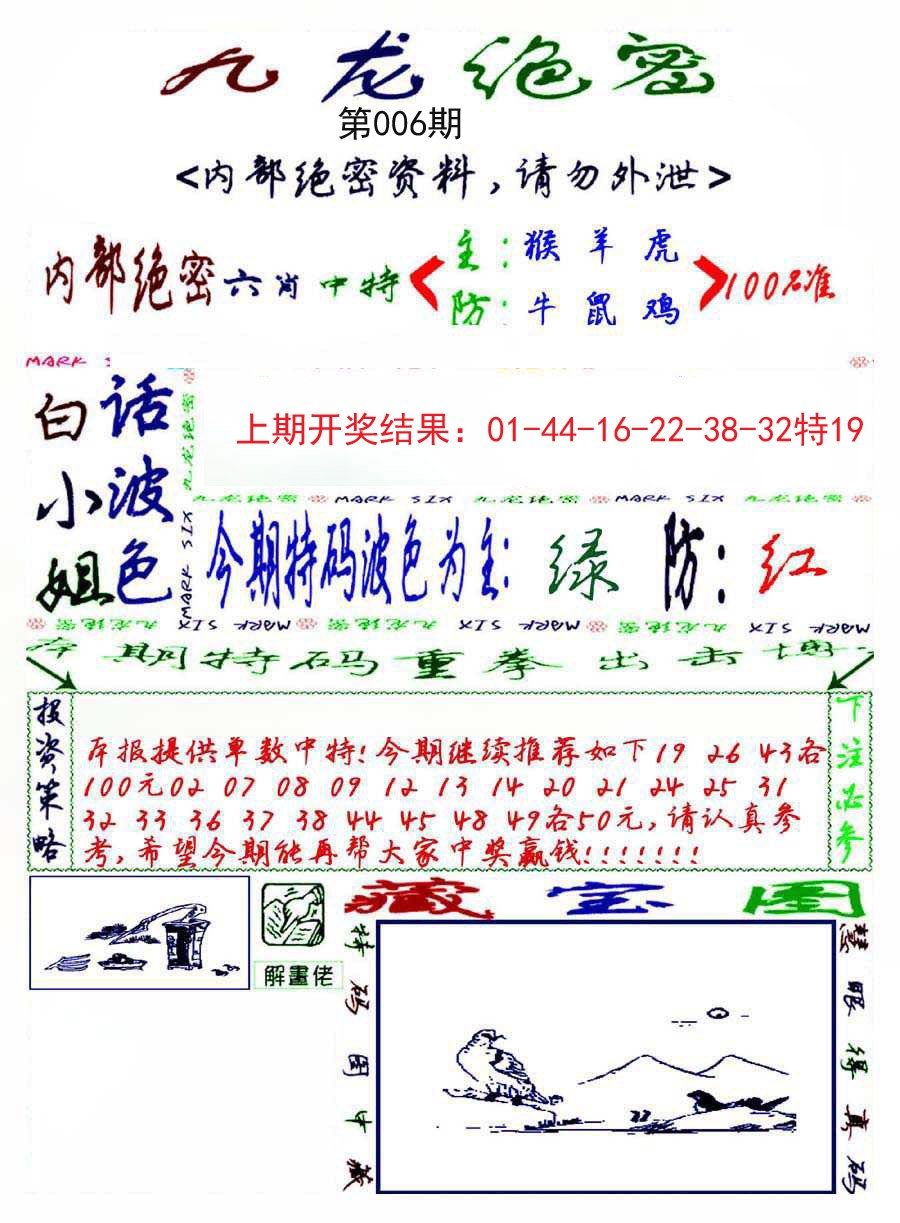 九龙绝密
第006期
<内部绝密资料,请勿外泄>
内部绝密六肖中特
主:猴 羊 虎
防:牛 鼠 鸡
100%准
MARK
白话
小波
姐色
九龙绝密
MARK SIX
上期开奖结果：01-44-16-22-38-32特19
九龙绝密 MARK SIX 九龙绝密 MARK SIX 九龙绝密
今期特码波色为主: 绿 防: 红
九龙绝密 MARK SIX 九龙绝密 MARK SIX 九龙绝密 MARK SIX
本期特码重拳出击博
投资策略
本报提供单数中特!今期继续推荐如下19 26 43各
100元02 07 08 09 12 13 14 20 21 24 25 31
32 33 36 37 38 44 45 48 49各50元,请认真参
考,希望今期能再帮大家中奖赢钱!!!!!!!
下注必参
解畫佬
藏宝图
特码图中藏
慧眼得真码